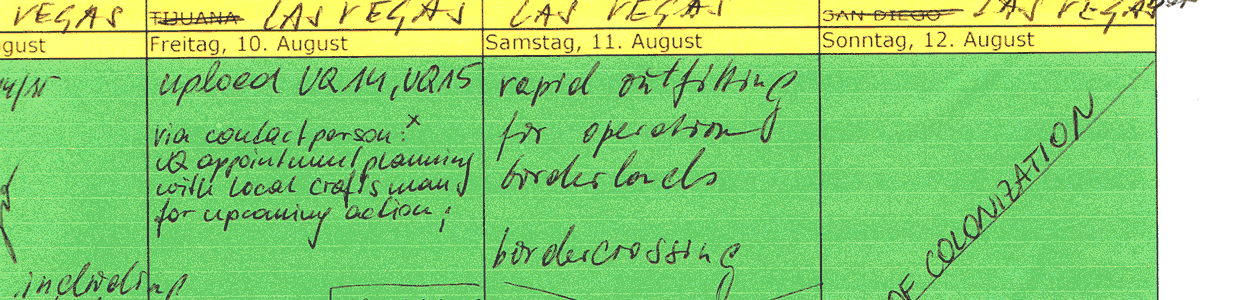 VEGAS TIJUANA LAS VEGAS LAS VEGAS SAN DIEGO LAS VEGAS
gust Freitag, 10. August Samstag, 11. August Sonntag, 12. August
14/15
upload VQ14, VQ15
via contactperson: x
VQ appointment planning
with local craftsman
for upcoming action;
including
rapid outfitting
for operation
borderlands
bordercrossing
OF COLONIZATION